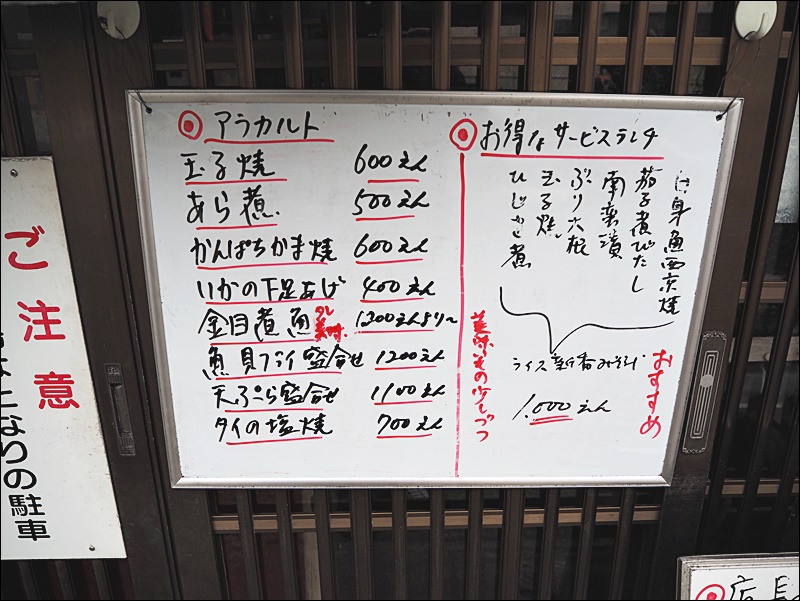 アラカルト
玉子焼 600えん
あら煮 500えん
かんぱちかま焼 600えん
いかの下足あげ 400えん
金目煮魚 タレ美味 1200えんより〜
魚貝フライ盛合せ 1200えん
天ぷら盛合せ 1100えん
タイの塩焼 700えん
お得なサービスランチ
白身魚西京焼
茄子煮びたし
南蛮漬
ぶり大根
玉子焼
ひじき煮
ライス 新香 みそ汁
1,000えん
おすすめ
美味しもの少しづつ
ご注意
となりの駐車
店長